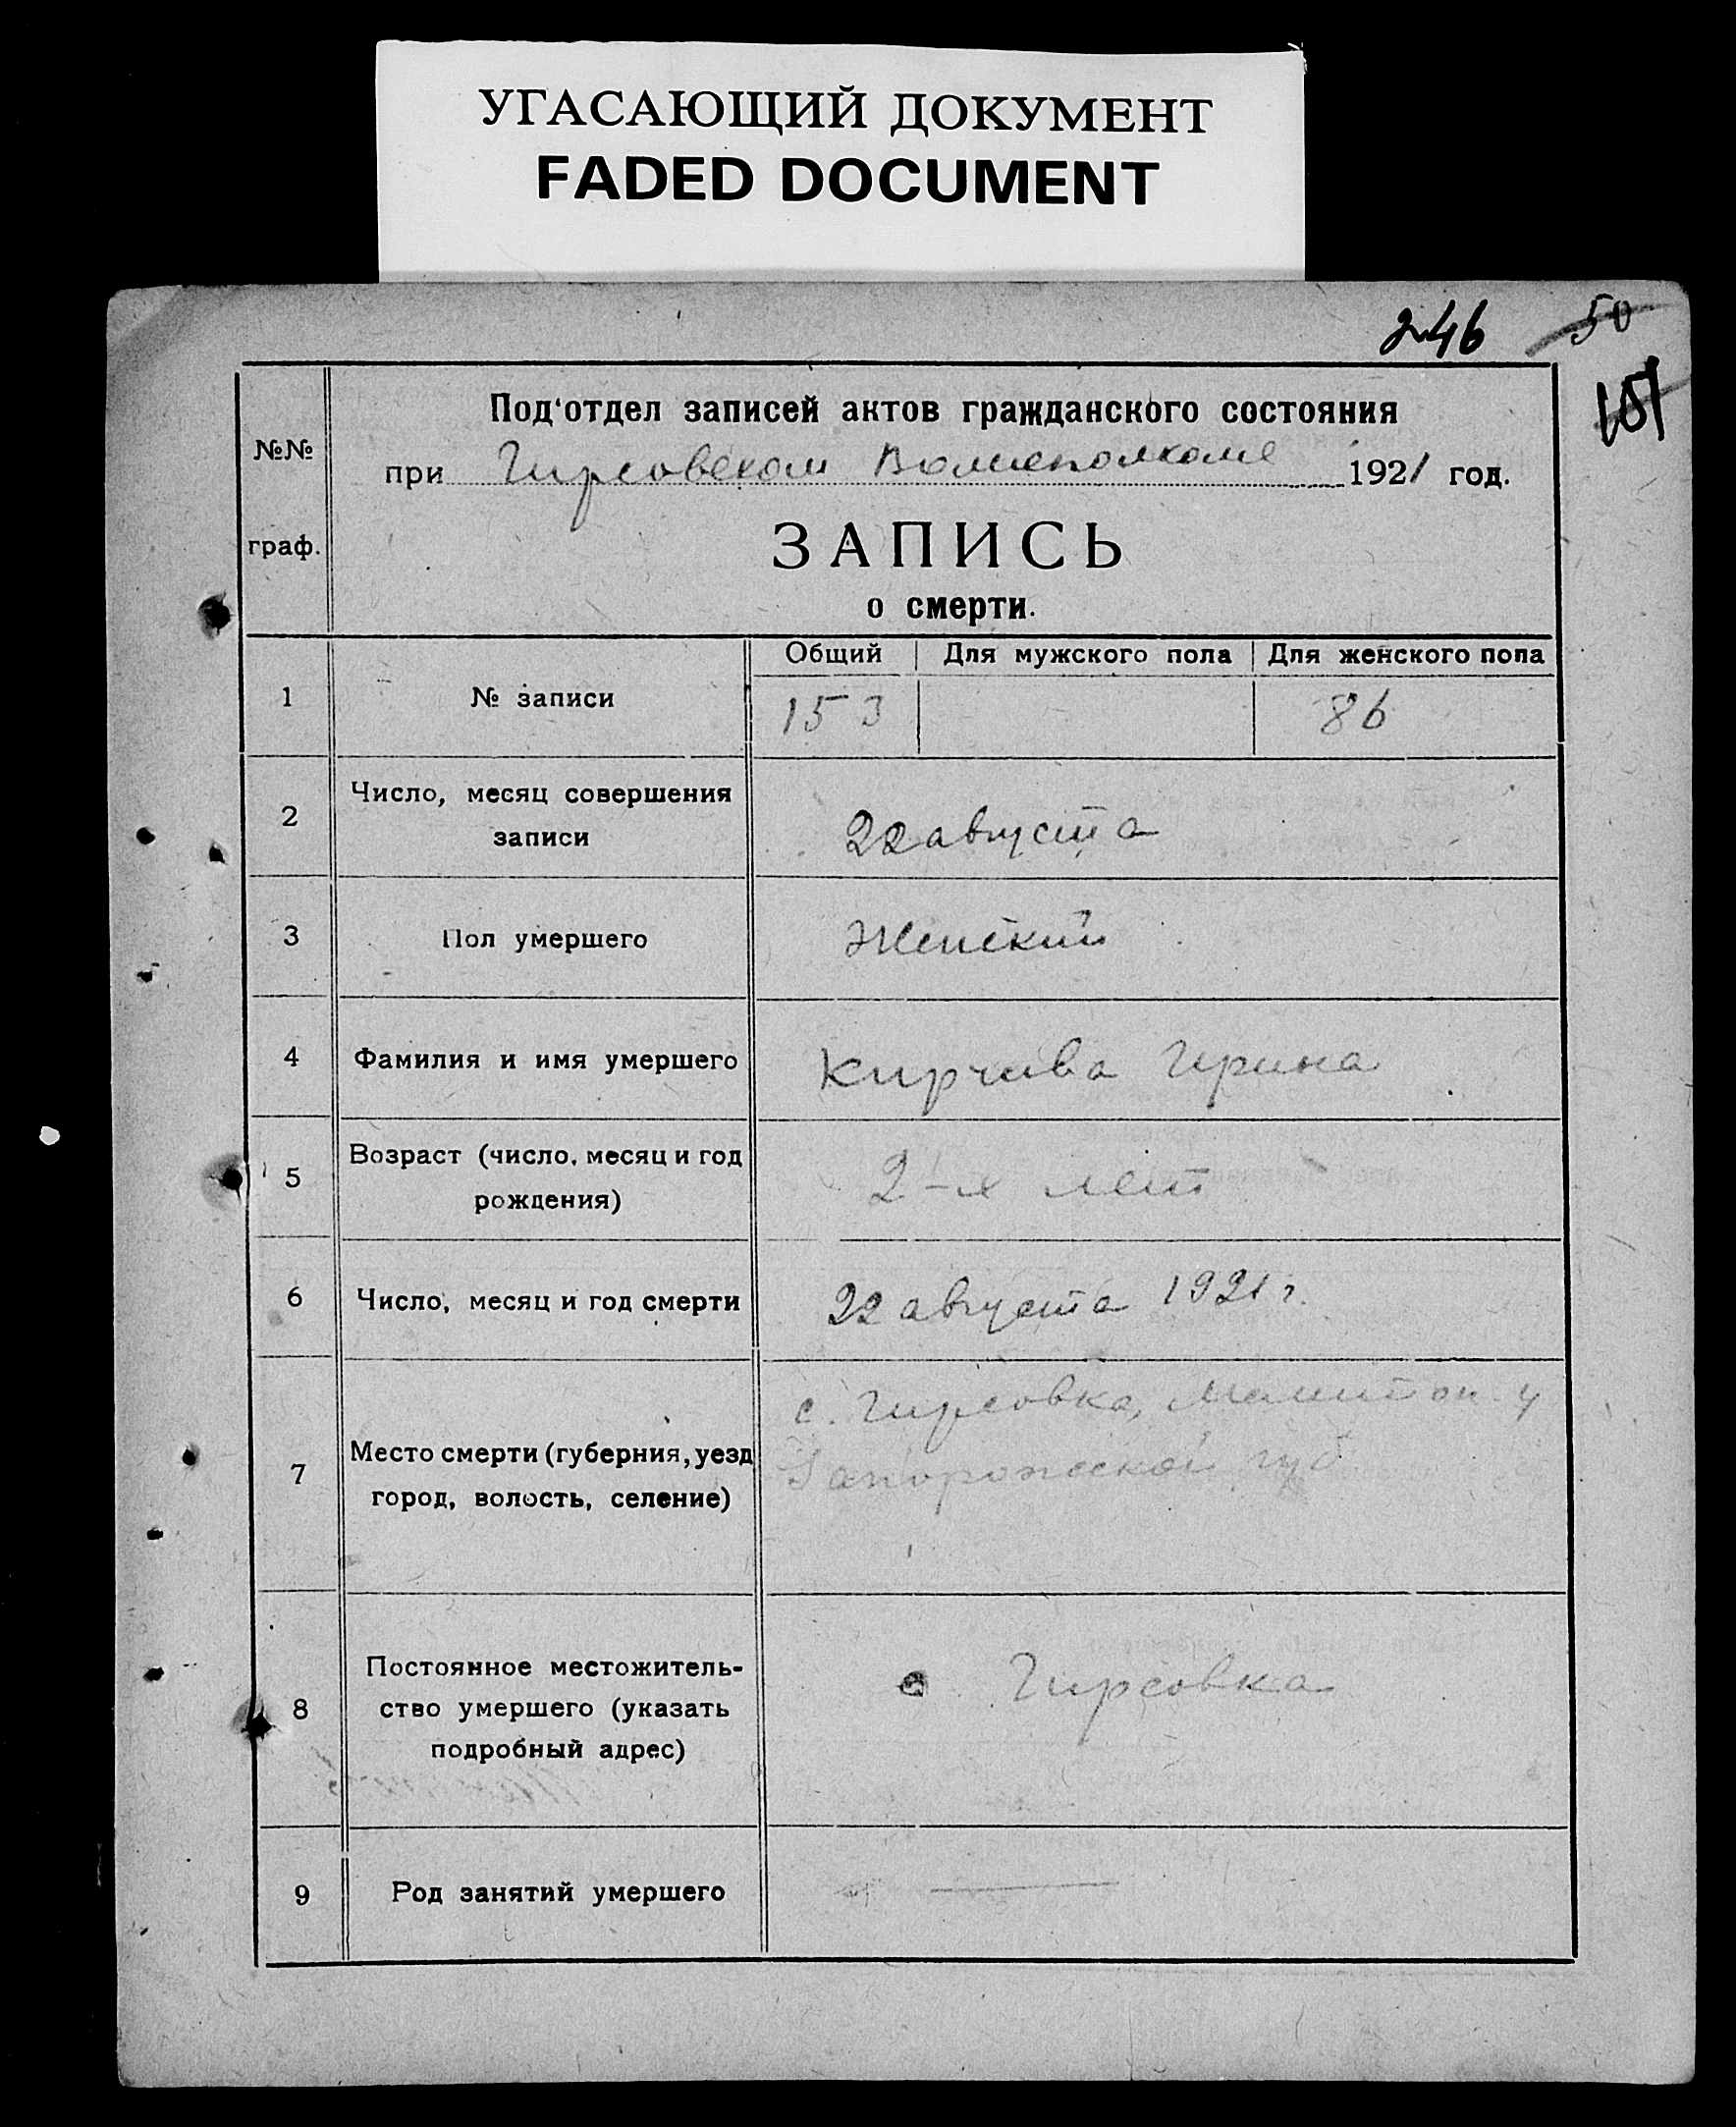 УГАСАЮЩИЙ ДОКУМЕНТ
FADED DOCUMENT
246 50
101
Под'отдел записей актов гражданского состояния
№№
при Гирсовском Волисполкоме 1921 год.
граф.
ЗАПИСЬ
о смерти.
Общий Для мужского пола Для женского пола
1 № записи 153 86
2 Число, месяц совершения
записи 22 августа
3 Пол умершего Женский
4 Фамилия и имя умершего Кирчева Ирина
5 Возраст (число, месяц и год
рождения) 2-х лет
6 Число, месяц и год смерти 22 августа 1921 г.
с. Гирсовка, Мелитоп. у
7 Место смерти (губерния, уезд
Запорожской губ
город, волость, селение)
Постоянное местожитель-
с Гирсовка
8 ство умершего (указать
подробный адрес)
9 Род занятий умершего —